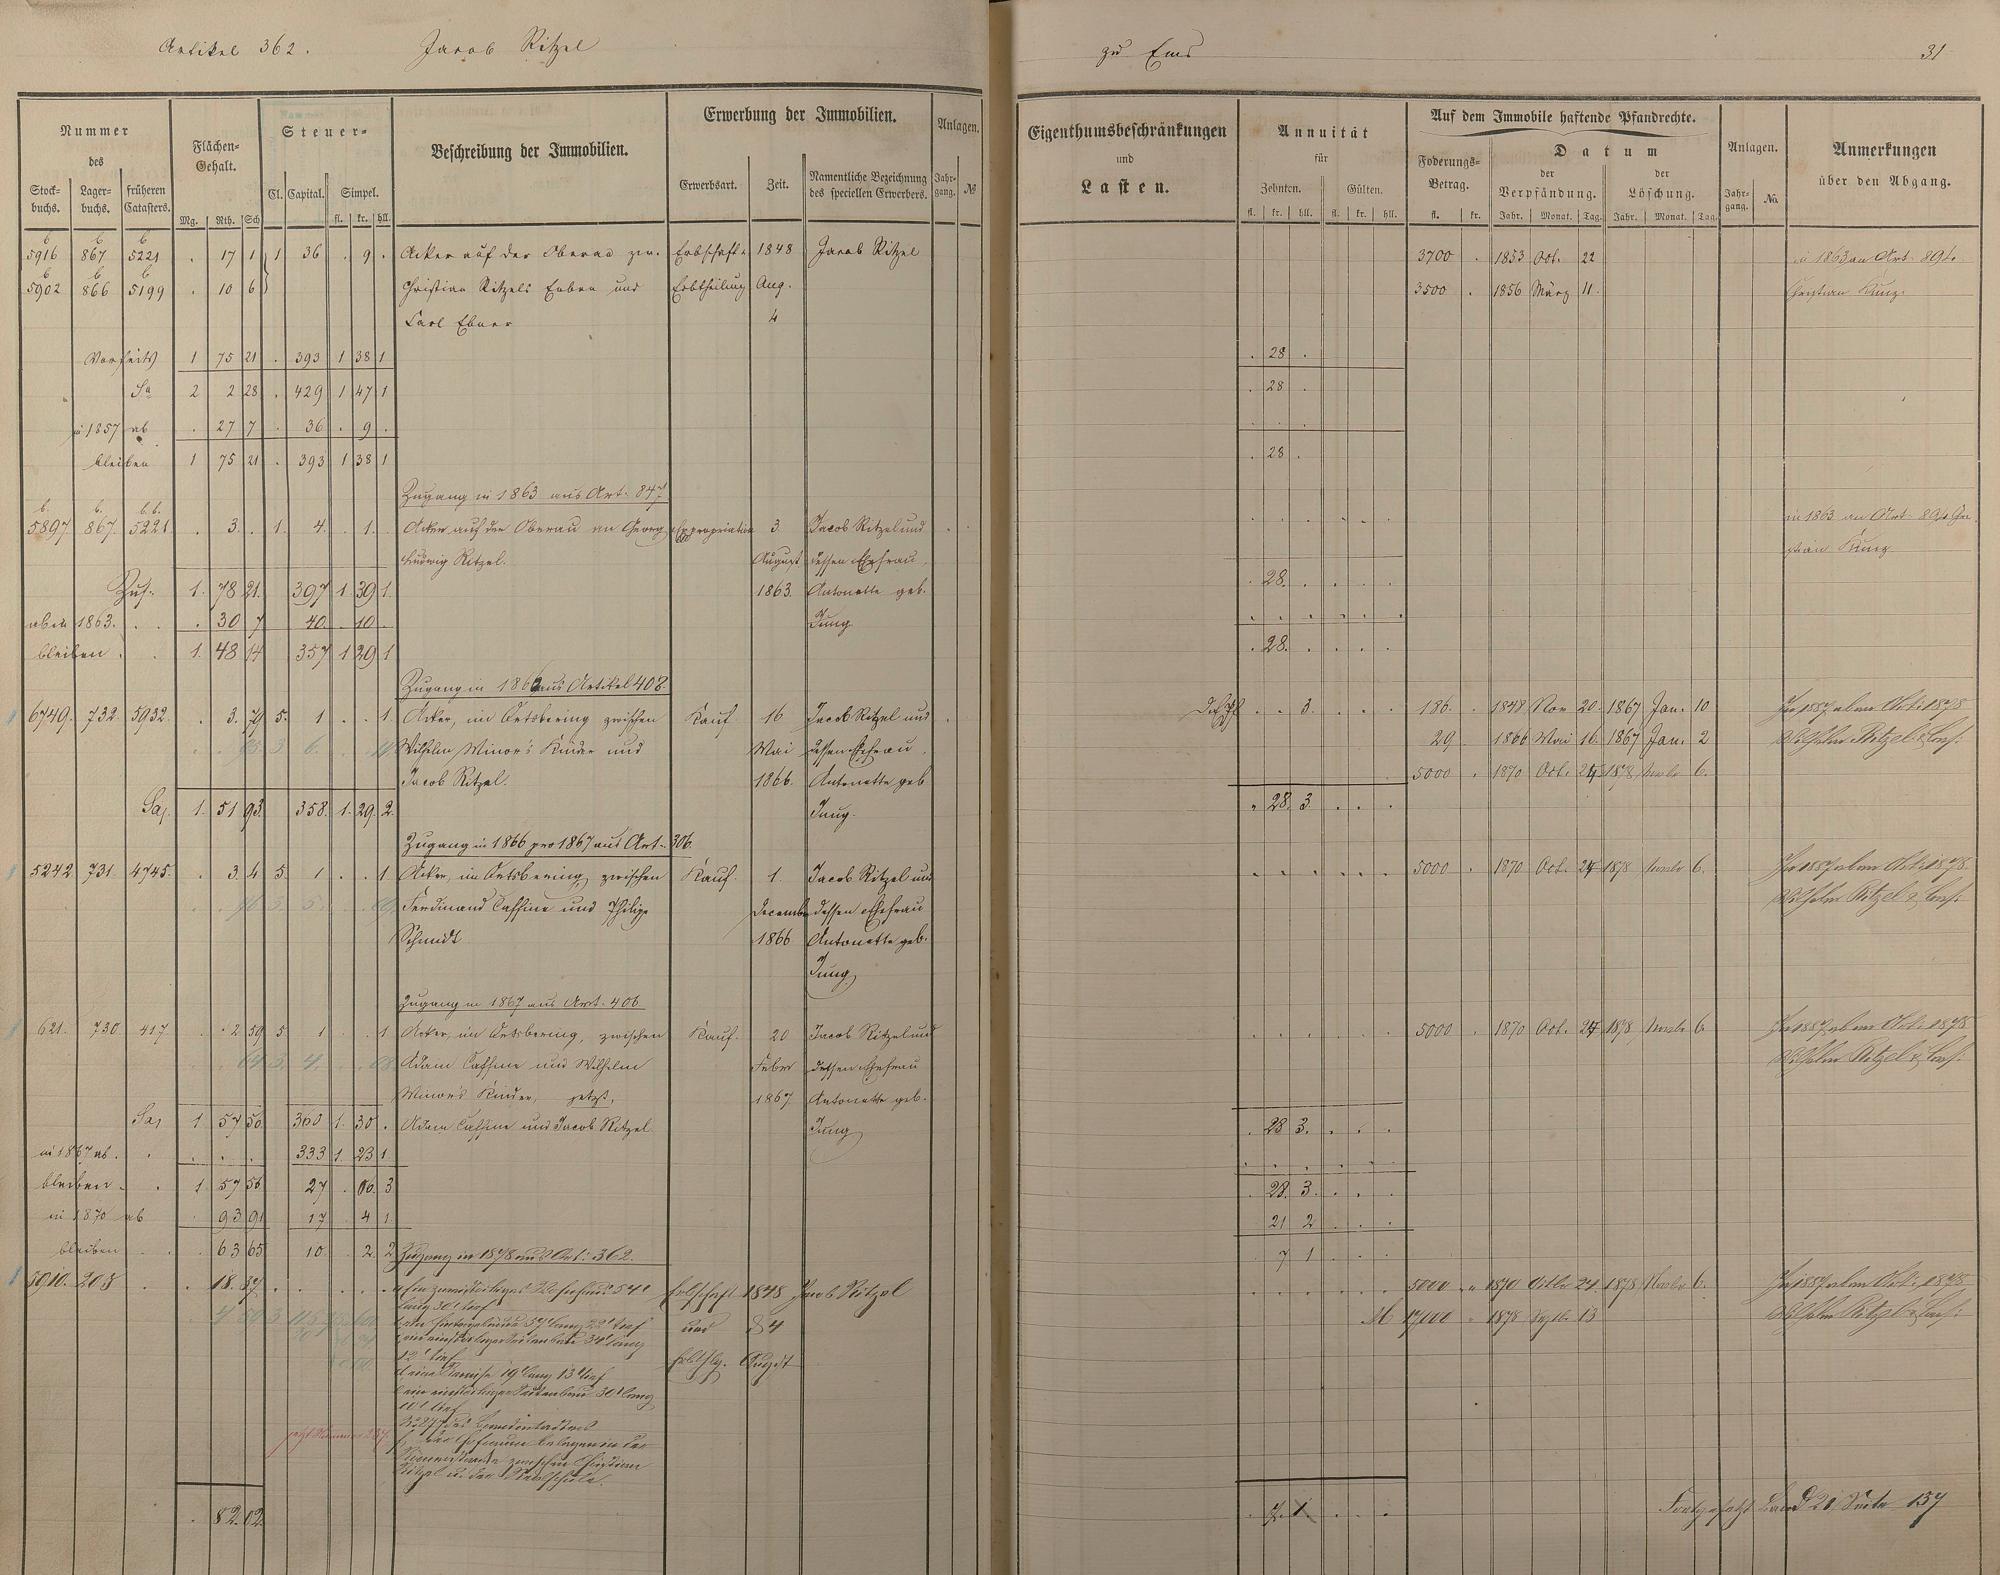 Artikel 362. Jacob Ritzel zu Ems 31
Nummer des
Flächen-Gehalt.
Steuer-
Beschreibung der Immobilien.
Erwerbung der Immobilien.
Anlagen.
Eigenthumsbeschränkungen und Lasten.
Annuität für
Auf dem Immobile haftende Pfandrechte.
Anlagen.
Anmerkungen über den Abgang.
Stock-buchs. Lager-buchs. früheren Catasters. Mg. Rth. Sch Cl. Capital. Simpel. fl. kr. hll.
Erwerbsart. Zeit. Namentliche Bezeichnung des speciellen Erwerbers. Jahr-gang. №
Zehnten. fl. kr. hll. Gülten. fl. kr. hll.
Foderungs-Betrag. fl. kr. Datum der Verpfändung. Jahr. Monat. Tag. der Löschung. Jahr. Monat. Tag. Jahr-gang. No.
b b b
5916 867 5221 . 17 1 1 36 . 9 . Acker auf der Oberau zw. Erbschaft u. 1848 Jacob Ritzel 3700 . 1853 Oct. 22 in 1863 an Art. 894.
b b b
5902 866 5199 . 10 6 Christian Ritzels Erben und Erbtheilung Aug. 3500 . 1856 März 11. Christian Kunz.
Carl Ebner 4
Vorseits 1 75 21 . 393 1 38 1 . 28 .
Sa 2 2 28 . 429 1 47 1 . 28 .
in 1857 ab . 27 7 . 36 . 9 .
bleiben 1 75 21 . 393 1 38 1 . 28 .
Zugang in 1863 aus Art. 847
b. b. b.b.
5897. 867. 5221. . 3. . 1. 4. . 1. Acker auf der Oberau an Georg Expropriation 3. Jacob Ritzel und in 1863 an Art. 894 Chri-
Ludwig Ritzel. August dessen Ehefrau, stian Kunz
Zus. 1. 78 21. 397 1. 39 1. 1863. Antonette geb. . 28.
ab in 1863. . . 30 7 40. . 10 . Jung.
bleiben . 1. 48 14 357 1 29 1 . 28.
Zugang in 1862 aus Artikel 408.
6749. 732. 5932. . 3. 79 5. 1 . . 1. Acker, im Ortsbering zwischen Kauf 16. Jacob Ritzel und . . 3. 186. 1848 Nov 20. 1867 Jan. 10 Im 1887 ab an Art: 1878
Wilhelm Minor's Kinder und Mai dessen Ehefrau, 29 1866 Mai 16. 1867 Jan. 2 Wilhelm Ritzel & Cons:
Jacob Ritzel. 1866. Antonette geb 5000 . 1870 Oct. 24 1878 Novbr 6.
Sa. 1. 51 93. 358. 1. 29. 2. Jung. . 28. 3.
Zugang in 1866 pro 1867 aus Art. 306.
5242. 731. 4745. . 3 4 5. 1 . . 1 Acker, im Ortsbering, zwischen Kauf. 1. Jacob Ritzel und 5000 . 1870 Oct. 24 1878 Novbr 6. Im 1887 ab an Art: 1878.
Ferdinand Caffine und Philipp December dessen Ehefrau Wilhelm Ritzel & Cons:
Schmidt 1866 Antonette geb.
Jung.
Zugang in 1867 aus Art. 406
621. 730 417 . . 2 59 5 1 . . 1 Acker, im Ortsbering, zwischen Kauf. 20 Jacob Ritzel und 5000 . 1870 Oct. 24 1878 Novbr 6. Im 1887 ab an Art: 1878
Adam Caffine und Wilhelm Feber dessen Ehefrau Wilhelm Ritzel & Cons:
Minor's Kinder, jetzt, 1867 Antonette geb.
Sa. 1 57 56. 360 1. 30. . Adam Caffine und Jacob Ritzel Jung . 28 3.
in 1867 ab. 333 1. 23 1.
bleiben . . 1 57 56 27 . 06. 3 . 28. 3.
in 1870 ab 93 91 17 4 1 21 2
bleiben 63 65 10. . 2. 2 Zugang in 1878 aus Art: 362. 7 1
5910. 203 . . 18. 37 Ein zweistöckiges Wohnhaus 54' Erbschaft 1848 Jacob Ritzel 5000 1870 Octbr 24. 1878 Novbr 6. Im 1887 ab an Art: 1878
lang 30' tief und d 4 M 17,000 . 1878 Septbr 13 Wilhelm Ritzel & Cons:
Hintergebäude 57' lang 22' tief
ein einstöckiger Seitenbau 34' lang
12' tief Erbthlg. August
eine Remise 19' lang 13' tief
ein einstöckiger Seitenbau 30' lang
10' tief
jetzt Nummer
Hofraum belegen in der
Römerstraße zwischen Christian
Ritzel u. der Realschule.
. 82. 02. . 7. 1. Fortgesetzt Band 21 Seite 137